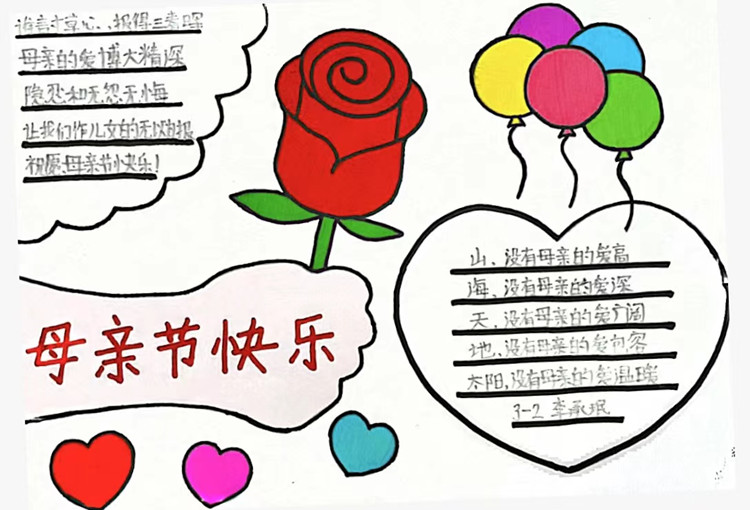 谁言寸草心、报得三春晖
母亲的爱博大精深
隐忍和无怨无悔
让我们作儿女的无以为报
祝愿:母亲节快乐!
母亲节快乐
山、没有母亲的爱高
海、没有母亲的爱深
天、没有母亲的爱广阔
地、没有母亲的爱包容
太阳,没有母亲的爱温暖
3-2 李承珉